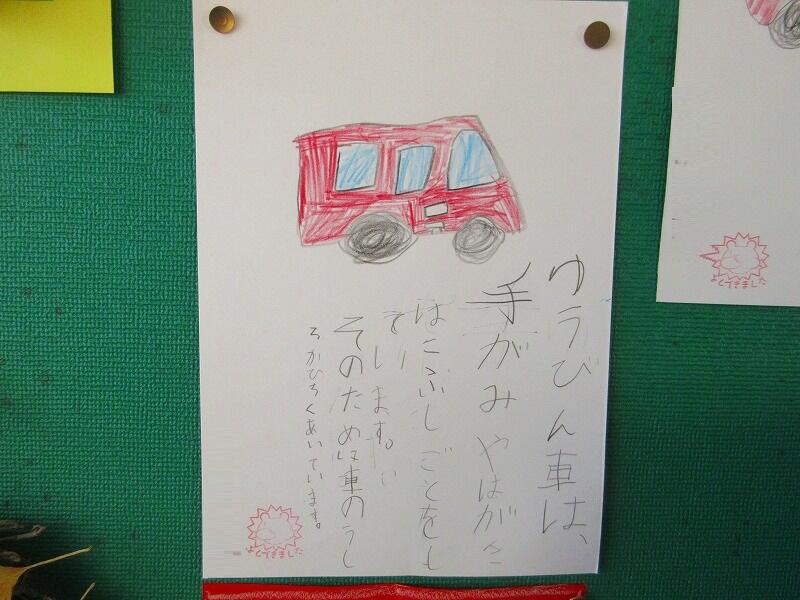 ゆうびん車は、
手がみやはがき
はこぶしごとをし
ています。
そのため車のうし
ろがひろくあいています。
よくできました
よくできました